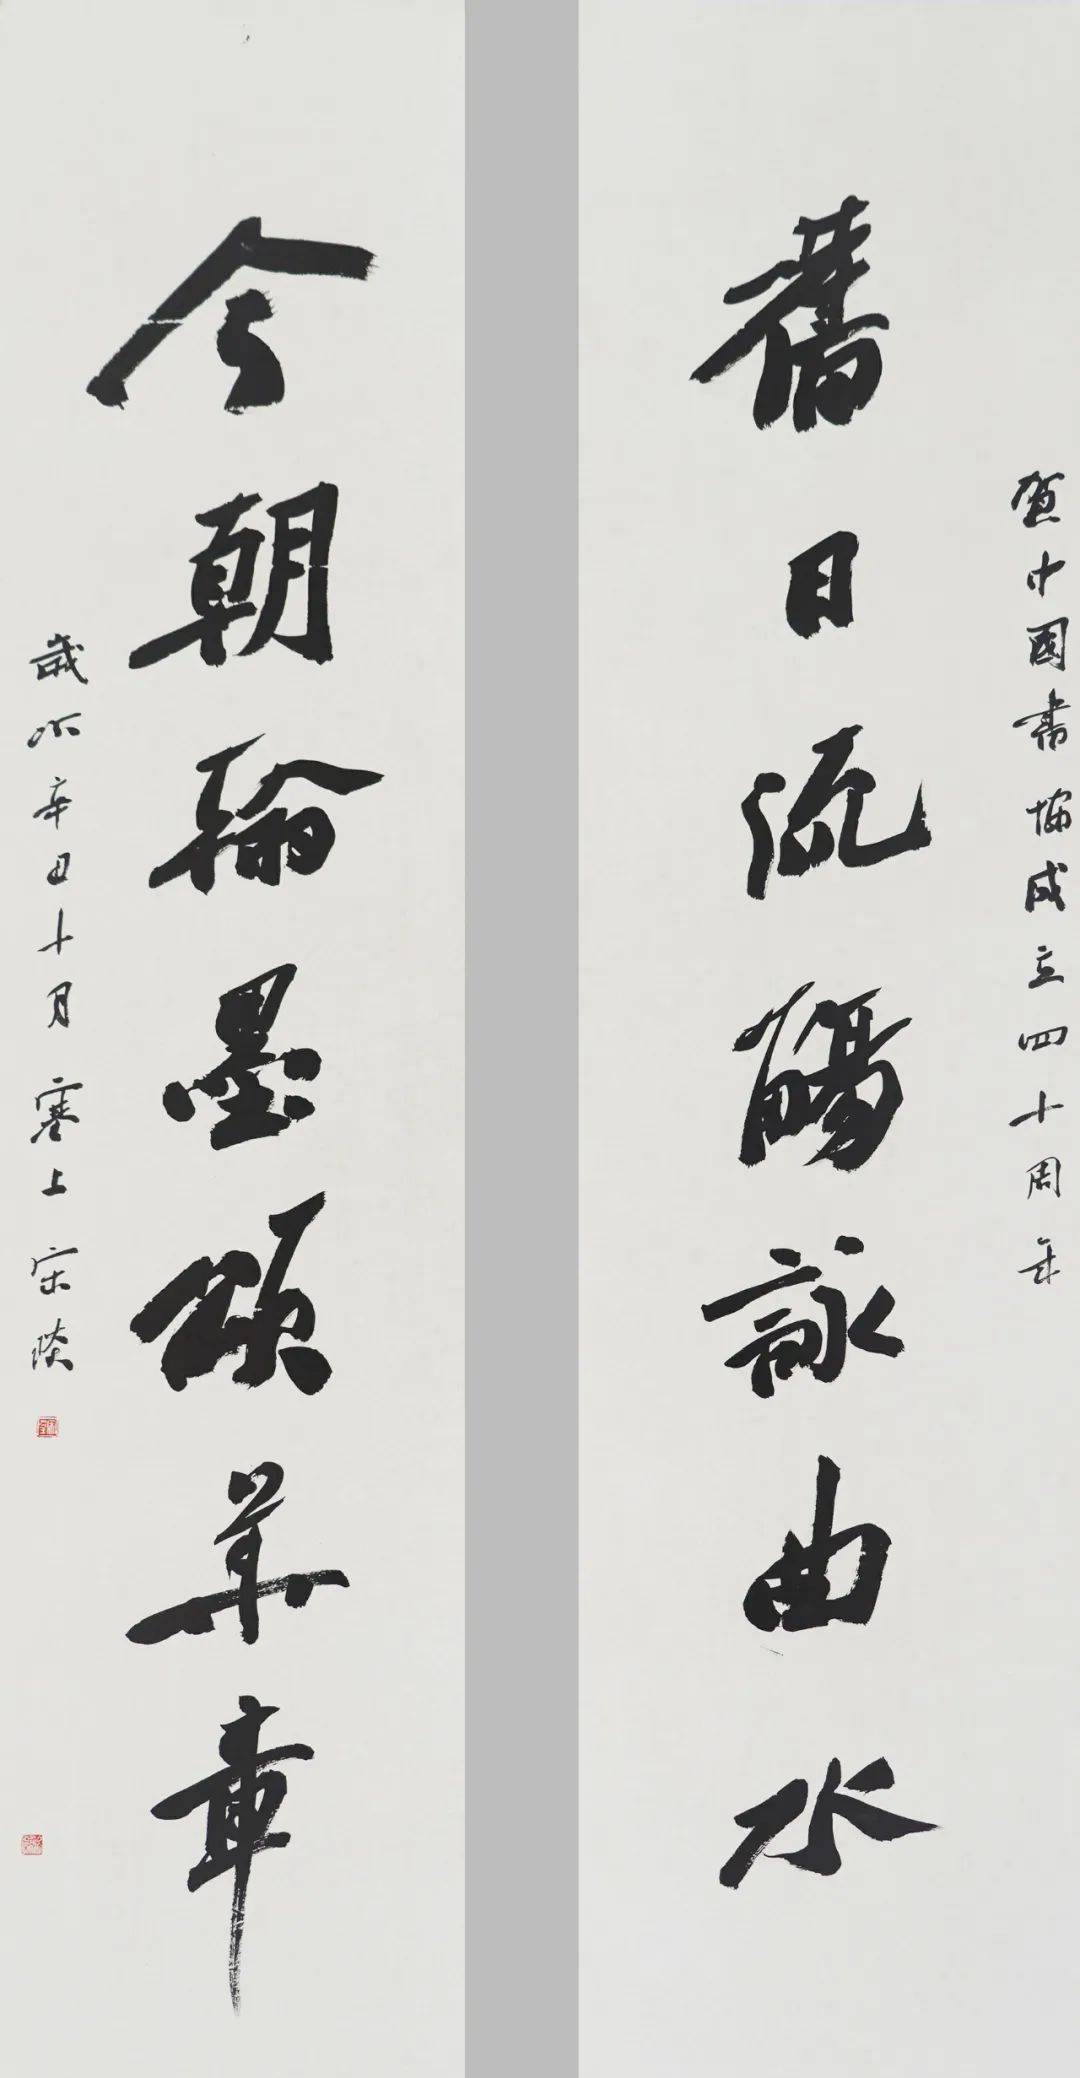 賀中國書協成立四十周年
舊日流觴詠曲水
今朝翰墨頌華章
歲次辛丑十月塞上宋琰